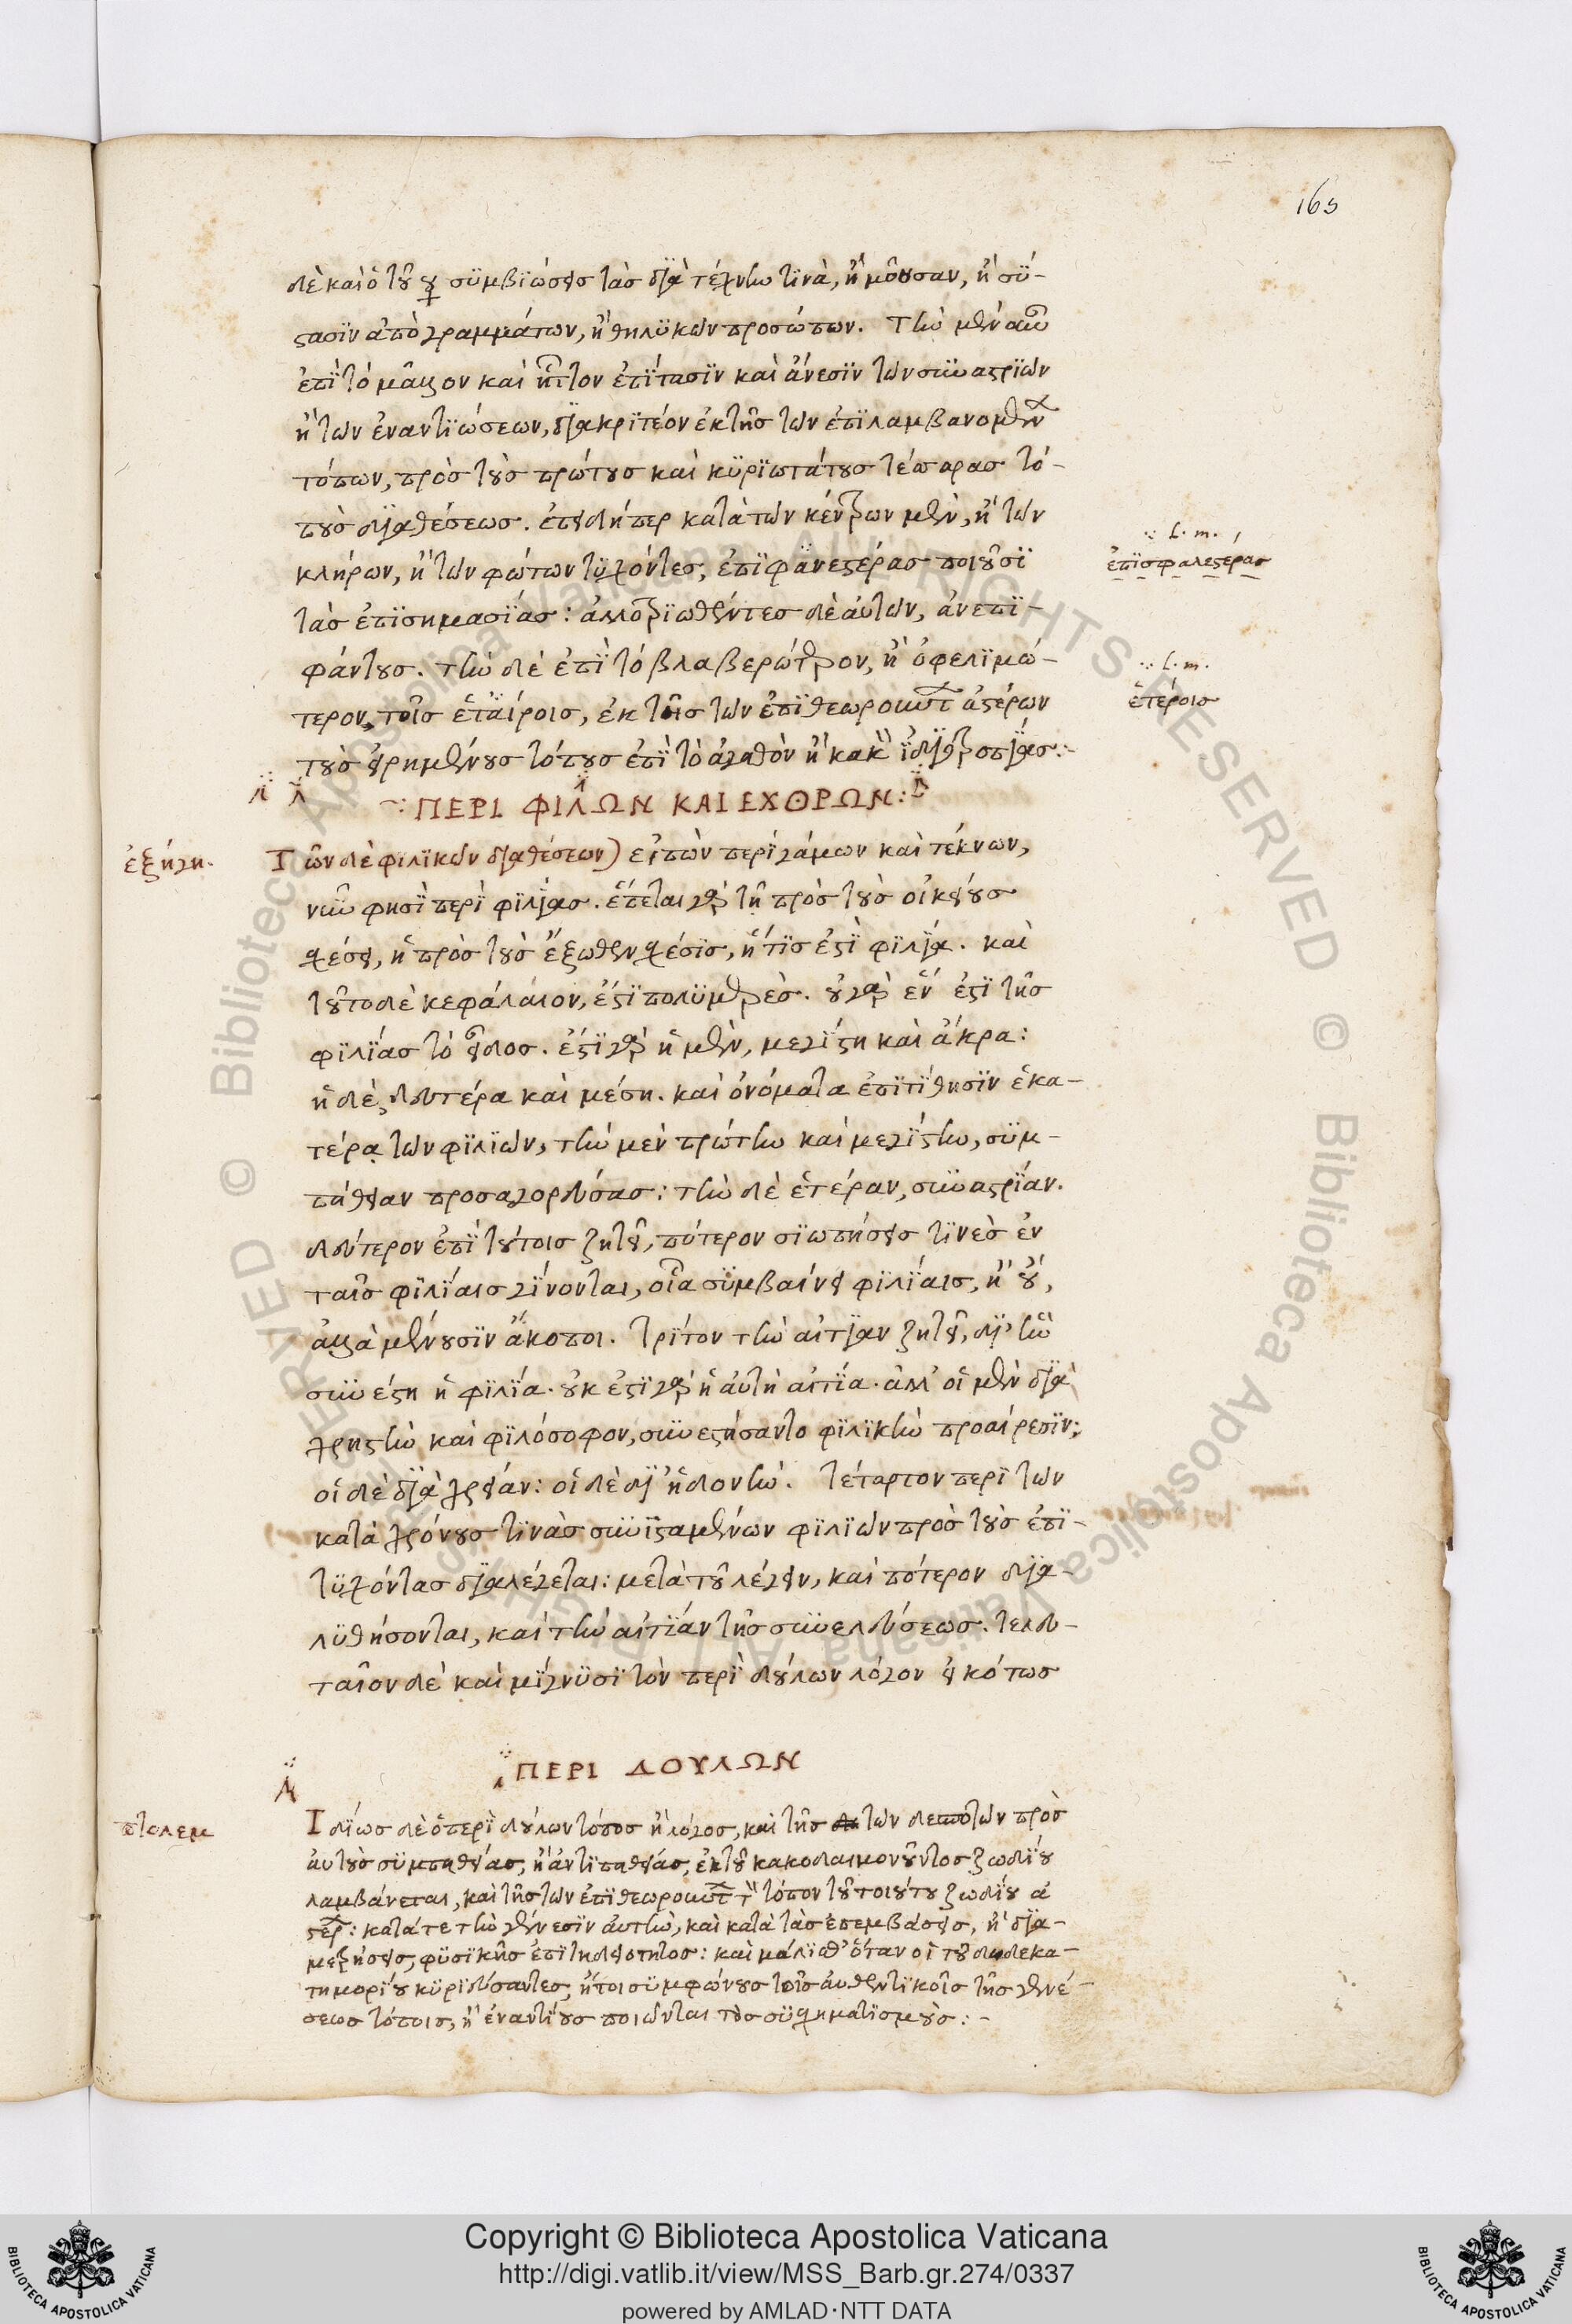 165
δὲ καὶ ὁ τοῦ ☿ συμβιώσεις τὰς διὰ τέχνην τινὰ, ἢ μοῦσαν, ἢ σύ-
στασιν ἀπὸ γραμμάτων, ἢ θηλυκῶν προσώπων. Τὴν μὲν οὖν
ἐπὶ τὸ μᾶλλον καὶ ἧττον ἐπίτασιν καὶ ἄνεσιν τῶν συναστριῶν
ἢ τῶν ἐναντιώσεων, διακριτέον ἐκ τῆς τῶν ἐπιλαμβανομένων
τόπων, πρὸς τοὺς πρώτους καὶ κυριωτάτους τέσσαρας τό-
πους διαθέσεως. ἐπειδήπερ κατὰ τῶν κέντρων μὲν, ἢ τῶν
κλήρων, ἢ τῶν φώτων τυχόντες, ἐπιφανεστέρας ποιοῦσι
τὰς ἐπισημασίας: ἀλλοτριωθέντες δὲ αὐτῶν, ἀνεπι-
φάντους. τὴν δὲ ἐπὶ τὸ βλαβερώτερον, ἢ ὀφελιμώ-
τερον, τοῖς ἑταίροις, ἐκ τῆς τῶν ἐπιθεωρούντων ἀστέρων
τοὺς εἰρημένους τόπους ἐπὶ τὸ ἀγαθὸν ἢ κακὸν ἰδιοτροπίας:-
·:· L. m.
ἐπισφαλεστέρας
·:· L. m.
ἑτέροις
ΠΕΡΙ ΦΙΛΩΝ ΚΑΙ ΕΧΘΡΩΝ:
ἐξήγη.
Τῶν δὲ φιλικῶν διαθέσεων) εἰπὼν περὶ γάμων καὶ τέκνων,
νῦν φησὶ περὶ φιλίας. ἕπεται γὰρ τῇ πρὸς τοὺς οἰκείους
σχέσει, ἡ πρὸς τοὺς ἔξωθεν σχέσις, ἥτις ἐστὶ φιλία. καὶ
τοῦτο δὲ κεφάλαιον, ἐστὶ πολυμερὲς. οὐ γὰρ ἓν ἐστὶ τῆς
φιλίας τὸ εἶδος. ἐστὶ γὰρ ἡ μὲν, μεγίστη καὶ ἄκρα:
ἡ δὲ, δευτέρα καὶ μέση. καὶ ὀνόματα ἐπιτίθησιν ἑκα-
τέρᾳ τῶν φιλιῶν, τὴν μὲν πρώτην καὶ μεγίστην, συμ-
πάθειαν προσαγορεύσας: τὴν δὲ ἑτέραν, συναστρίαν.
δεύτερον ἐπὶ τούτοις ζητεῖ, πότερον σιωπήσεις τινὲς ἐν
ταῖς φιλίαις γίνονται, οἷα συμβαίνει φιλίαις, ἢ οὔ,
ἀλλὰ μένουσιν ἄκοποι. Τρίτον τὴν αἰτίαν ζητεῖ, δι' ἣν
συνέστη ἡ φιλία. οὐκ ἐστὶ γὰρ ἡ αὐτὴ αἰτία. ἀλλ' οἱ μὲν διὰ
χρηστὴν καὶ φιλόσοφον, συνεστήσαντο φιλικὴν προαίρεσιν:
οἱ δὲ διὰ χρείαν: οἱ δὲ δι' ἡδονήν. Τέταρτον περὶ τῶν
κατὰ χρόνους τινὰς συνισταμένων φιλιῶν πρὸς τοὺς ἐπι-
τυχόντας διαλέγεται: μετὰ τοῦ λέγειν, καὶ πότερον δια-
λυθήσονται, καὶ τὴν αἰτίαν τῆς συνελεύσεως. τελευ-
ταῖον δὲ καὶ μίγνυσι τὸν περὶ δούλων λόγον εἰκότως
ΠΕΡΙ ΔΟΥΛΩΝ
πτολεμ
Ἰδίως δὲ ὁ περὶ δούλων τόπος ἢ λόγος, καὶ τῆς τῶν δεσποτῶν πρὸς
αὐτοὺς συμπαθείας, ἢ ἀντιπαθείας, ἐκ τοῦ κακοδαιμονοῦντος ζωδίου
λαμβάνεται, καὶ τῆς τῶν ἐπιθεωρούντων τὸν τόπον τοῦ τοιούτου ζωδίου ἀ
στέρων: κατά τε τὴν γένεσιν αὐτὴν, καὶ κατὰ τὰς ἐπεμβάσεις, ἢ δια-
μετρήσεις, φυσικῆς ἐπιτηδειότητος: καὶ μάλισθ' ὅταν οἱ τοῦ δωδεκα-
τημορίου κυριεύσαντες, ἤτοι συμφώνους τοῖς αὐθεντικοῖς τῆς γενέ-
σεως τόποις, ἢ ἐναντίους ποιῶνται τοὺς συσχηματισμούς:-
© Biblioteca Apostolica Vaticana ALL RIGHTS RESERVED
Copyright © Biblioteca Apostolica Vaticana
http://digi.vatlib.it/view/MSS_Barb.gr.274/0337
powered by AMLAD·NTT DATA
BIBLIOTECA APOSTOLICA VATICANA
BIBLIOTECA APOSTOLICA VATICANA